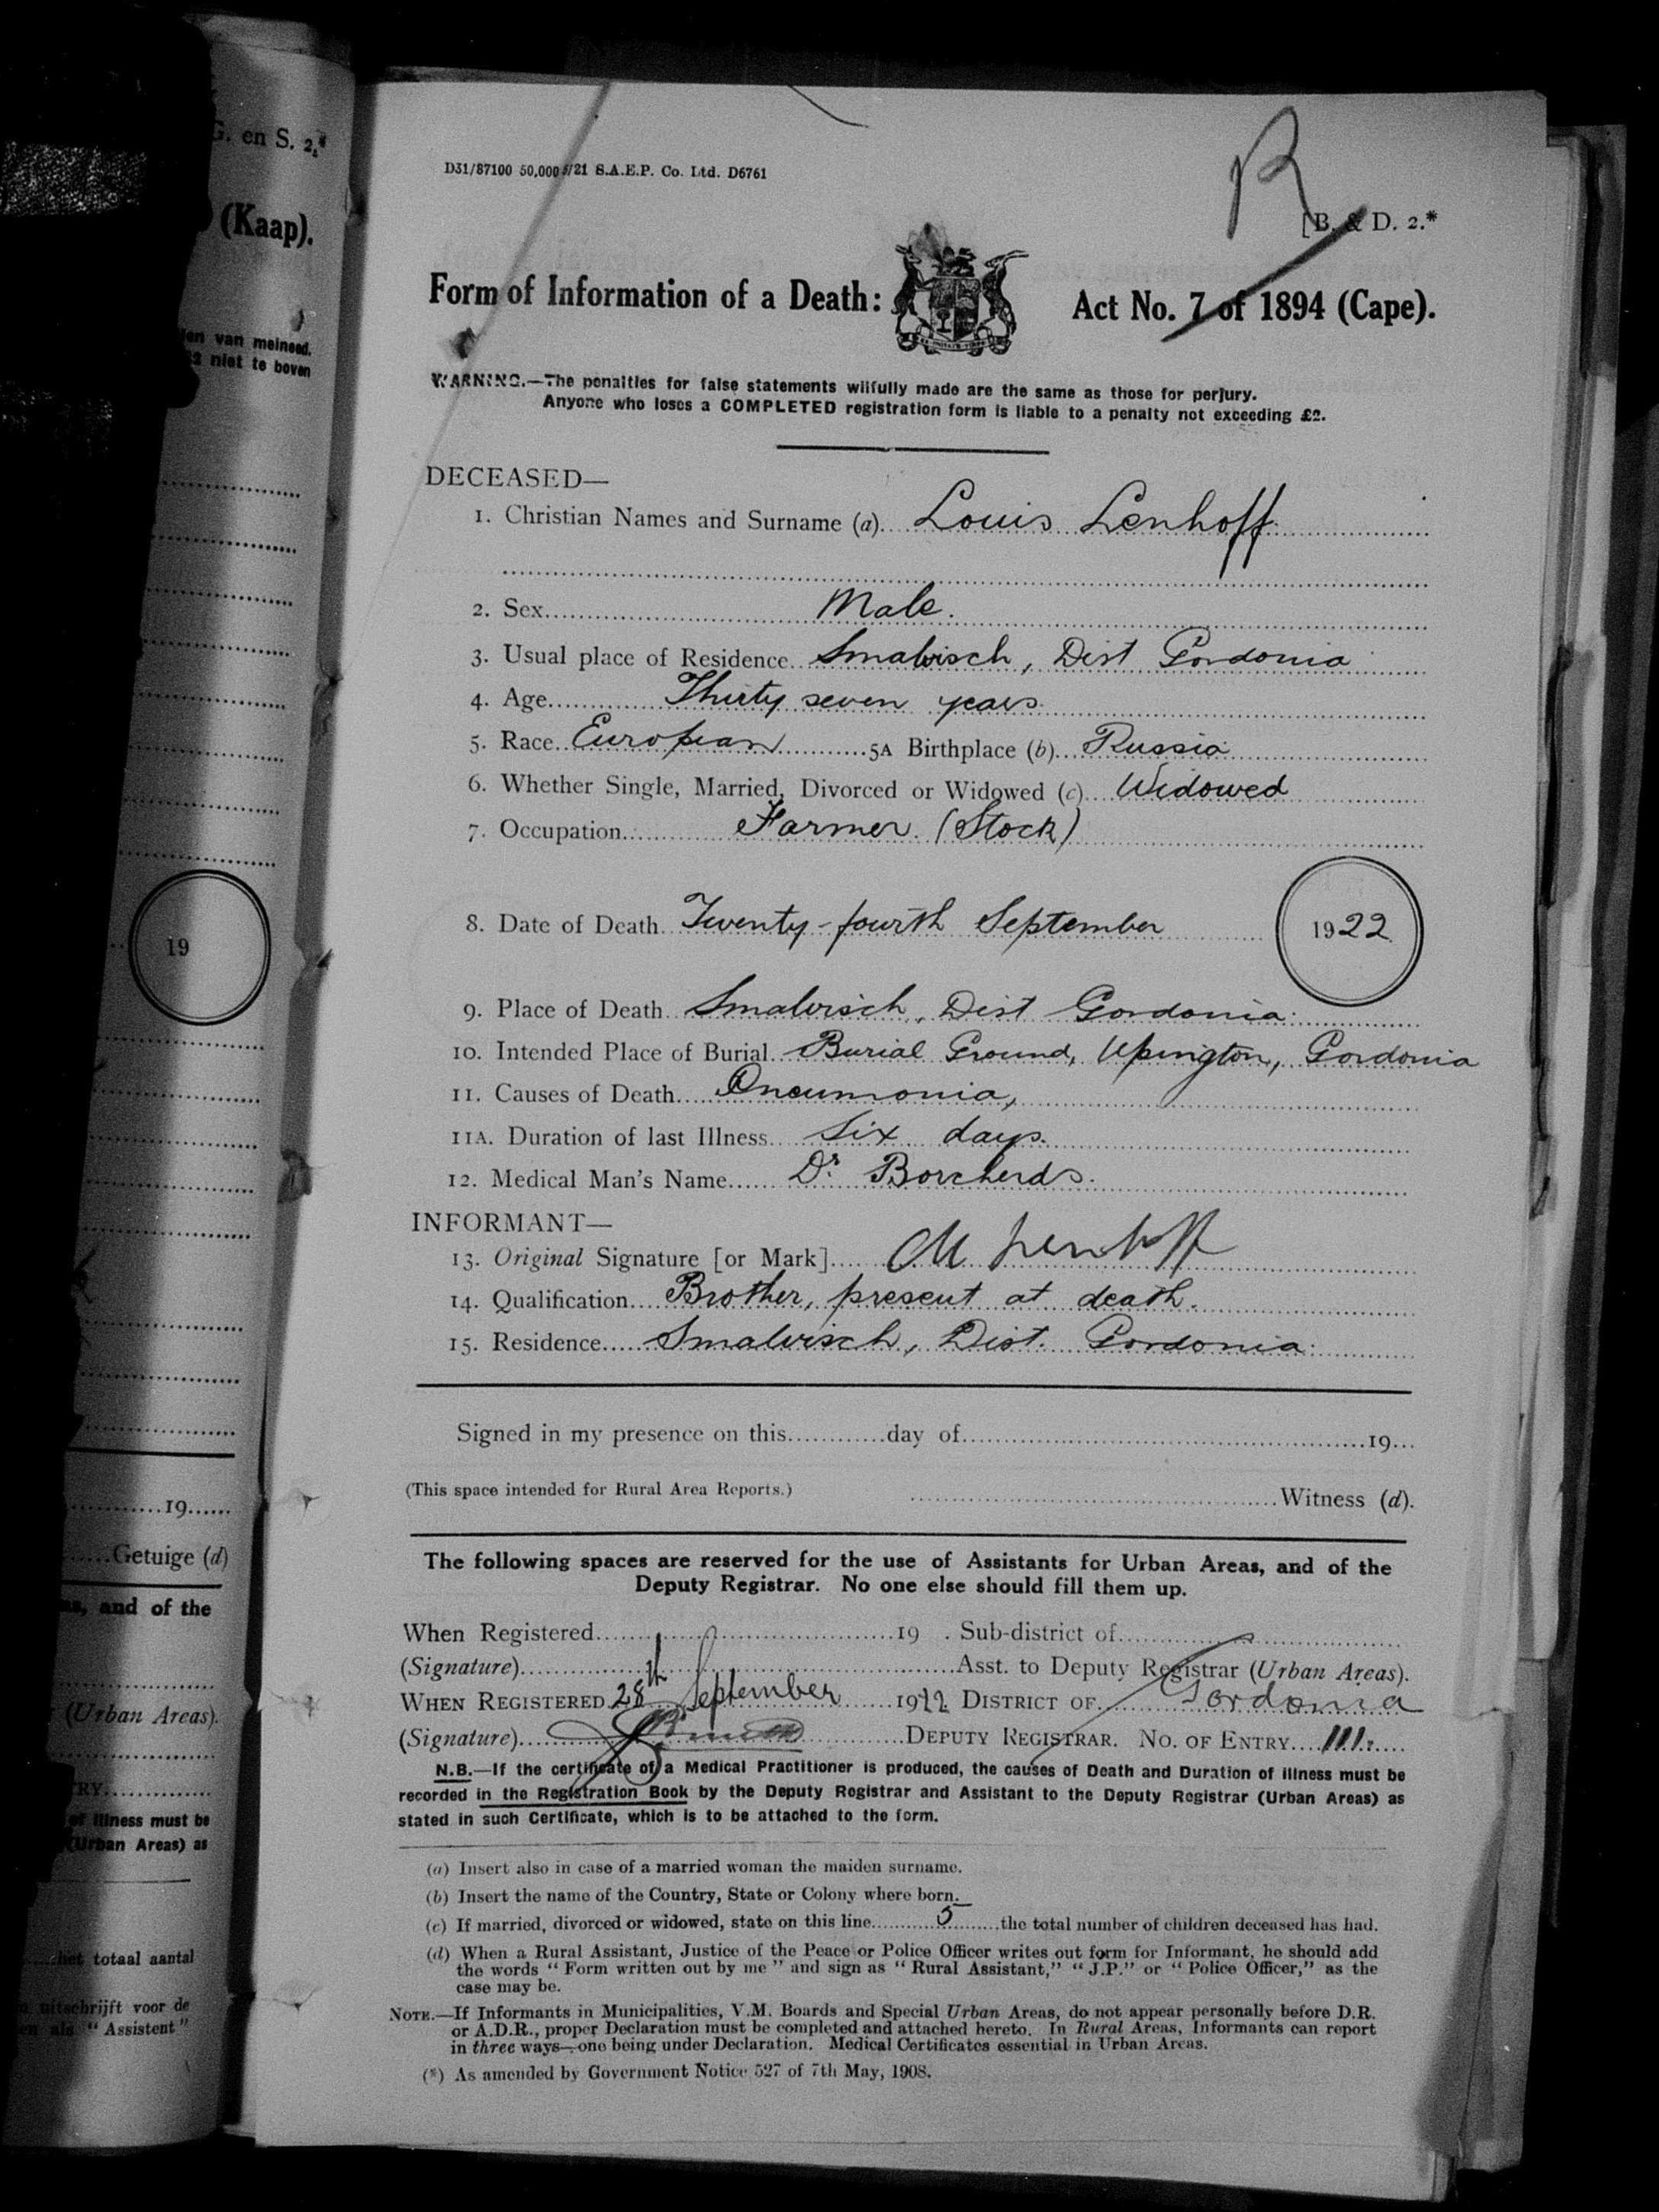 G. en S. 2.*
(Kaap).
en van meineed.
2 niet te boven
19
19
Getuige (d)
and of the
(Urban Areas).
RY
of illness must be
(Urban Areas) as
het totaal aantal
uitschrijft voor de
en als "Assistent"
D31/87100 50,000 /21 S.A.E.P. Co. Ltd. D6761
B
[B. & D. 2.*
Form of Information of a Death: Act No. 7 of 1894 (Cape).
WARNING.—The penalties for false statements wilfully made are the same as those for perjury.
Anyone who loses a COMPLETED registration form is liable to a penalty not exceeding £2.
DECEASED—
1. Christian Names and Surname (a) Louis Lenhoff
2. Sex Male.
3. Usual place of Residence Smalvisch, Dist Gordonia
4. Age Thirty seven years
5. Race European 5A Birthplace (b) Russia
6. Whether Single, Married, Divorced or Widowed (c) Widowed
7. Occupation Farmer. (Stock)
8. Date of Death Twenty-fourth September 1922
9. Place of Death Smalvisch, Dist Gordonia.
10. Intended Place of Burial Burial Ground, Upington, Gordonia
11. Causes of Death Pneumonia,
11A. Duration of last Illness Six days.
12. Medical Man's Name Dr. Borcherds.
INFORMANT—
13. Original Signature [or Mark] M Lenhoff
14. Qualification Brother, present at death.
15. Residence Smalvisch, Dist. Gordonia.
Signed in my presence on this day of 19
(This space intended for Rural Area Reports.) Witness (d).
The following spaces are reserved for the use of Assistants for Urban Areas, and of the
Deputy Registrar. No one else should fill them up.
When Registered 19 . Sub-district of
(Signature) Asst. to Deputy Registrar (Urban Areas).
WHEN REGISTERED 28th September 1922 DISTRICT OF Gordonia
(Signature) DEPUTY REGISTRAR. NO. OF ENTRY 111.
N.B.—If the certificate of a Medical Practitioner is produced, the causes of Death and Duration of illness must be
recorded in the Registration Book by the Deputy Registrar and Assistant to the Deputy Registrar (Urban Areas) as
stated in such Certificate, which is to be attached to the form.
(a) Insert also in case of a married woman the maiden surname.
(b) Insert the name of the Country, State or Colony where born.
(c) If married, divorced or widowed, state on this line 5 the total number of children deceased has had.
(d) When a Rural Assistant, Justice of the Peace or Police Officer writes out form for Informant, he should add
the words "Form written out by me" and sign as "Rural Assistant," "J.P." or "Police Officer," as the
case may be.
NOTE.—If Informants in Municipalities, V.M. Boards and Special Urban Areas, do not appear personally before D.R.
or A.D.R., proper Declaration must be completed and attached hereto. In Rural Areas, Informants can report
in three ways—one being under Declaration. Medical Certificates essential in Urban Areas.
(*) As amended by Government Notice 527 of 7th May, 1908.